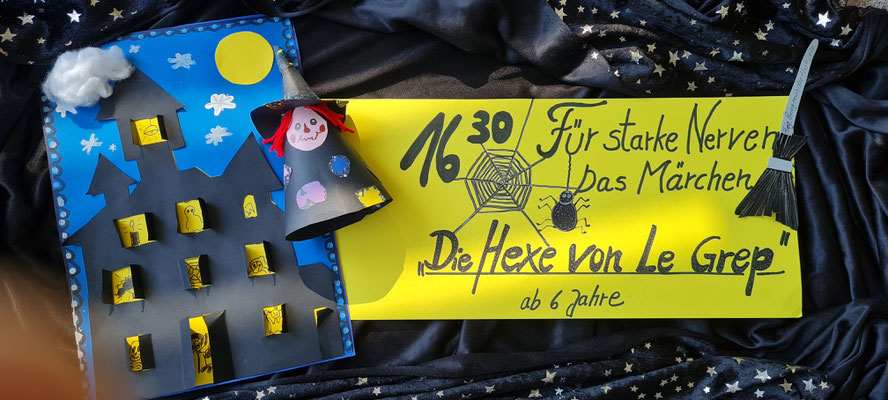 16 30
Für starke Nerven
Das Märchen
„Die Hexe von Le Grep"
ab 6 Jahre